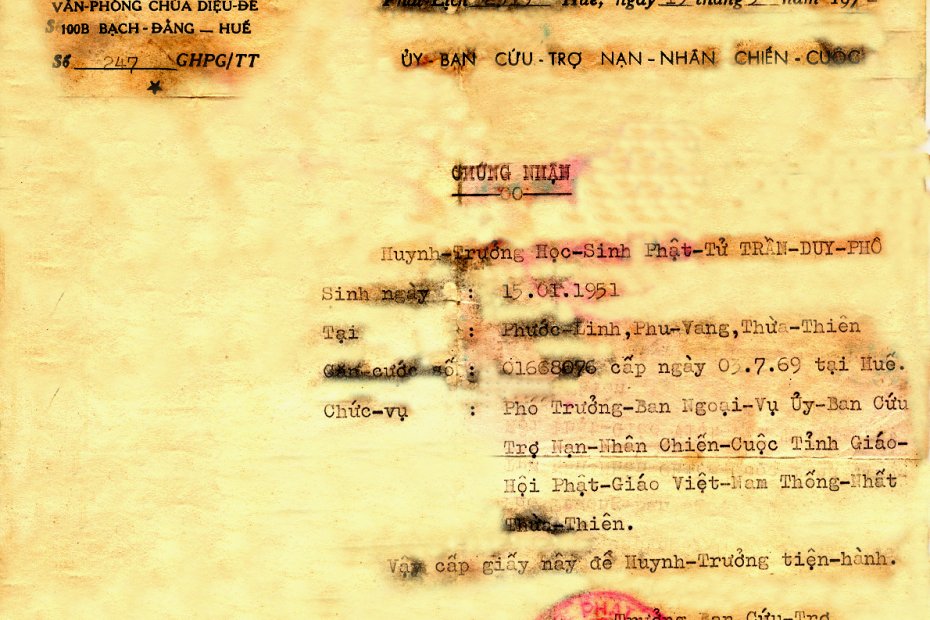 VĂN-PHÒNG CHÙA DIỆU-ĐẾ
100B BẠCH-ĐẰNG — HUẾ
Số 247 GHPG/TT
Huế, ngày 15 tháng 5 năm 197
ỦY-BAN CỨU-TRỢ NẠN-NHÂN CHIẾN-CUỘC
CHỨNG NHẬN
Huynh-Trưởng Học-Sinh Phật-Tử TRẦN-DUY-PHÔ
Sinh ngày : 15.01.1951
Tại : Phước-Linh,Phu-Vang,Thừa-Thiên
Căn-cước số : 01668076 cấp ngày 03.7.69 tại Huế.
Chức-vụ : Phó Trưởng-Ban Ngoại-Vụ Ủy-Ban Cứu
Trợ Nạn-Nhân Chiến-Cuộc Tỉnh Giáo-
Hội Phật-Giáo Việt-Nam Thống-Nhất
Thừa-Thiên.
Vậy cấp giấy nầy để Huynh-Trưởng tiện-hành.
PHẬT
Trưởng Ban Cứu-Trợ